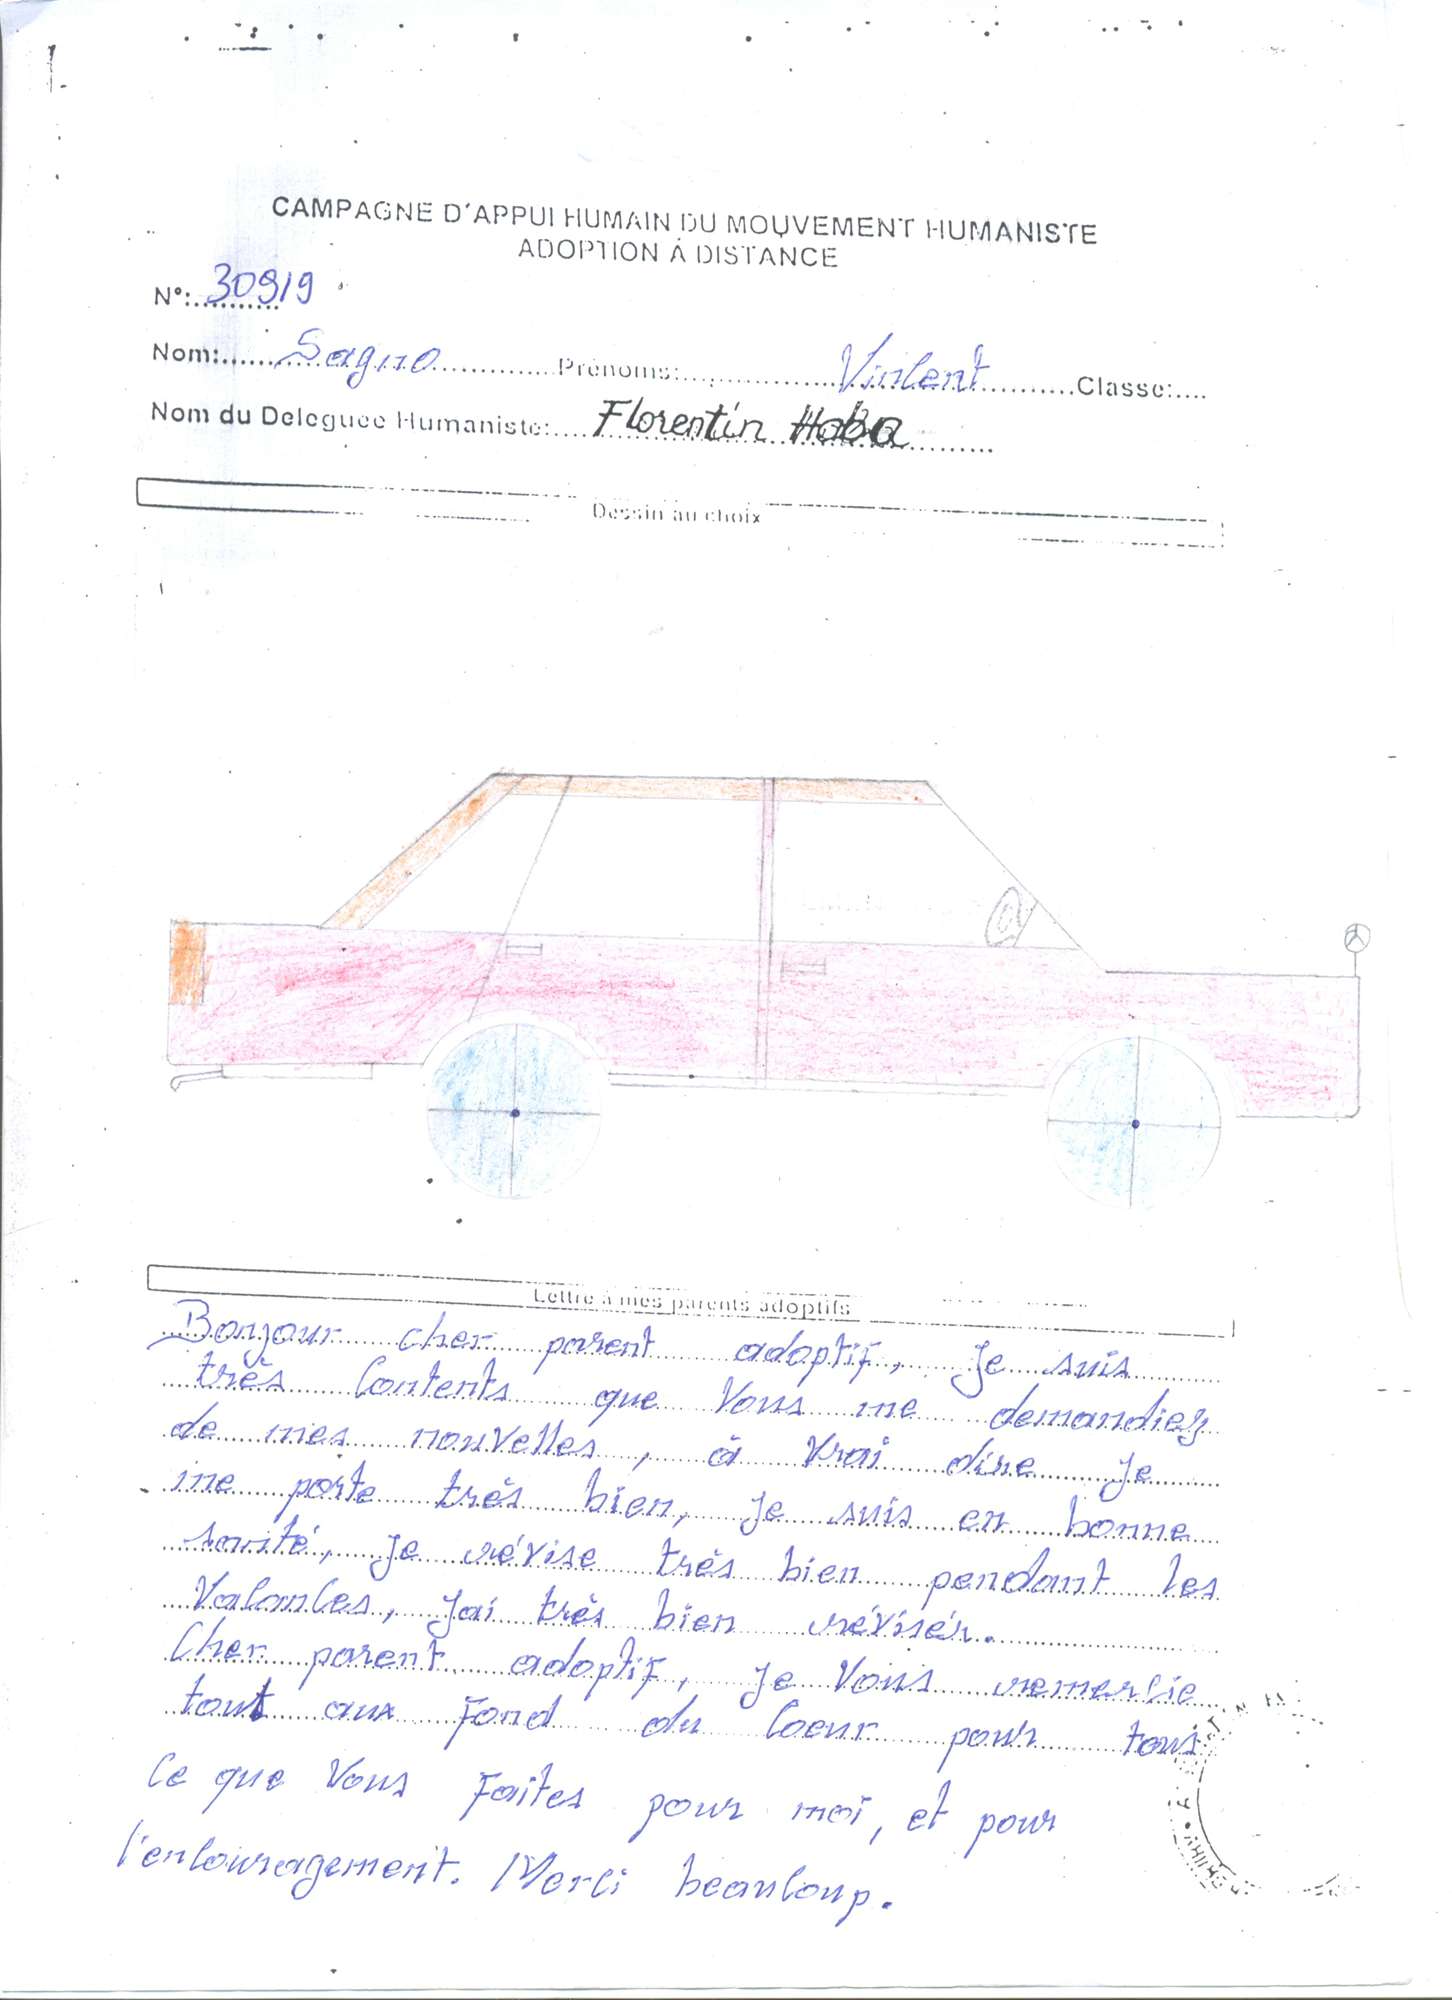 CAMPAGNE D'APPUI HUMAIN DU MOUVEMENT HUMANISTE
ADOPTION À DISTANCE
N°:.......... 30919
Nom:...... Sagno ............Prénoms:............... Vincent .........Classe:....
Nom du Deleguee Humaniste:.... Florentin Haba ......
Dessin au choix
Lettre à mes parents adoptifs
Bonjour cher parent adoptif, je suis
très contents que vous me demandiez
de mes nouvelles, à vrai dire je
me porte très bien, je suis en bonne
santé, je révise très bien pendant les
vacances, jai très bien révisér.
Cher parent adoptif, je vous remercie
tout aux fond du coeur pour tous
ce que vous faites pour moi, et pour
l'encouragement. Merci beaucoup.